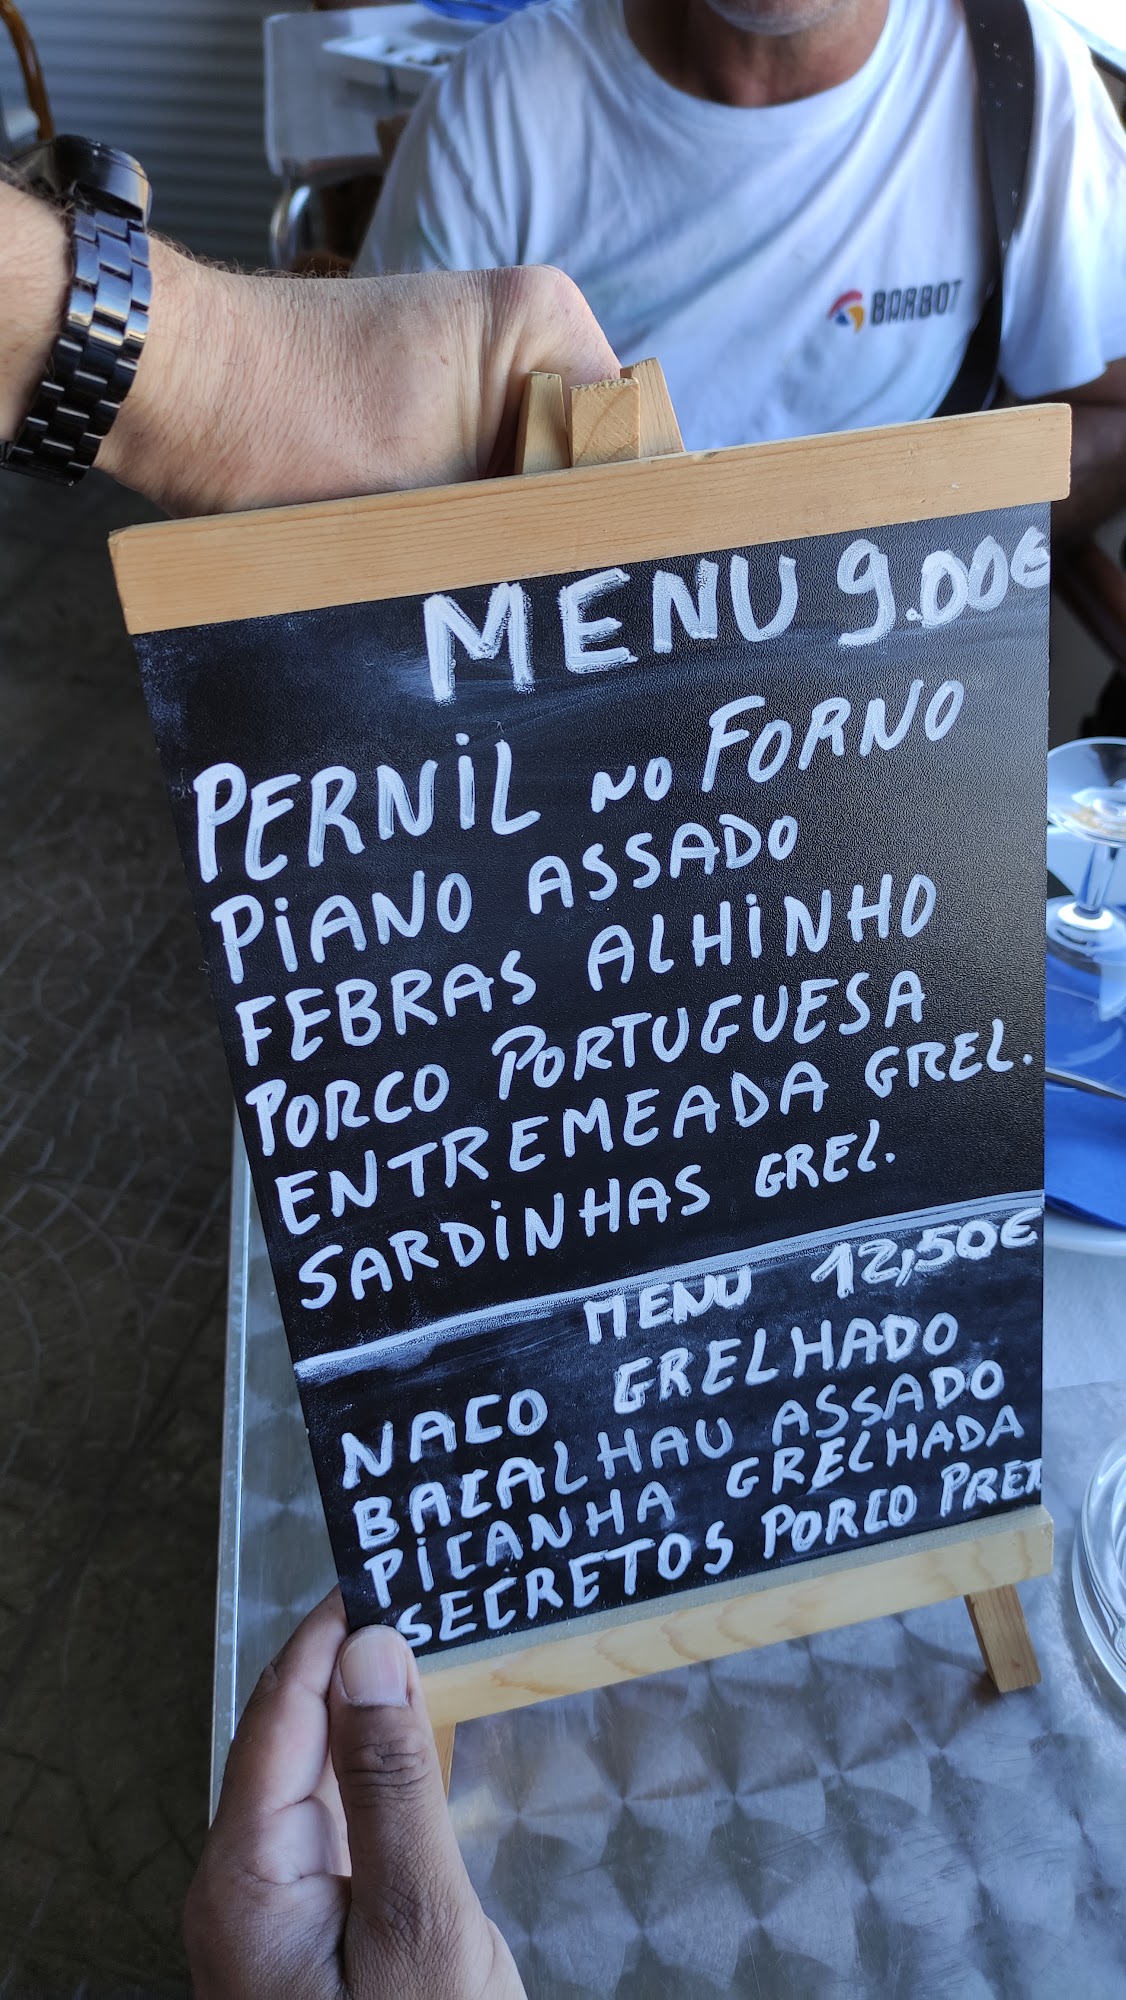 BARBOT
MENU 9.00€
PERNIL NO FORNO
PIANO ASSADO
FEBRAS ALHINHO
PORCO PORTUGUESA
ENTREMEADA GREL.
SARDINHAS GREL.
MENU 12,50€
NACO GRELHADO
BACALHAU ASSADO
PICANHA GRELHADA
SECRETOS PORCO PRET